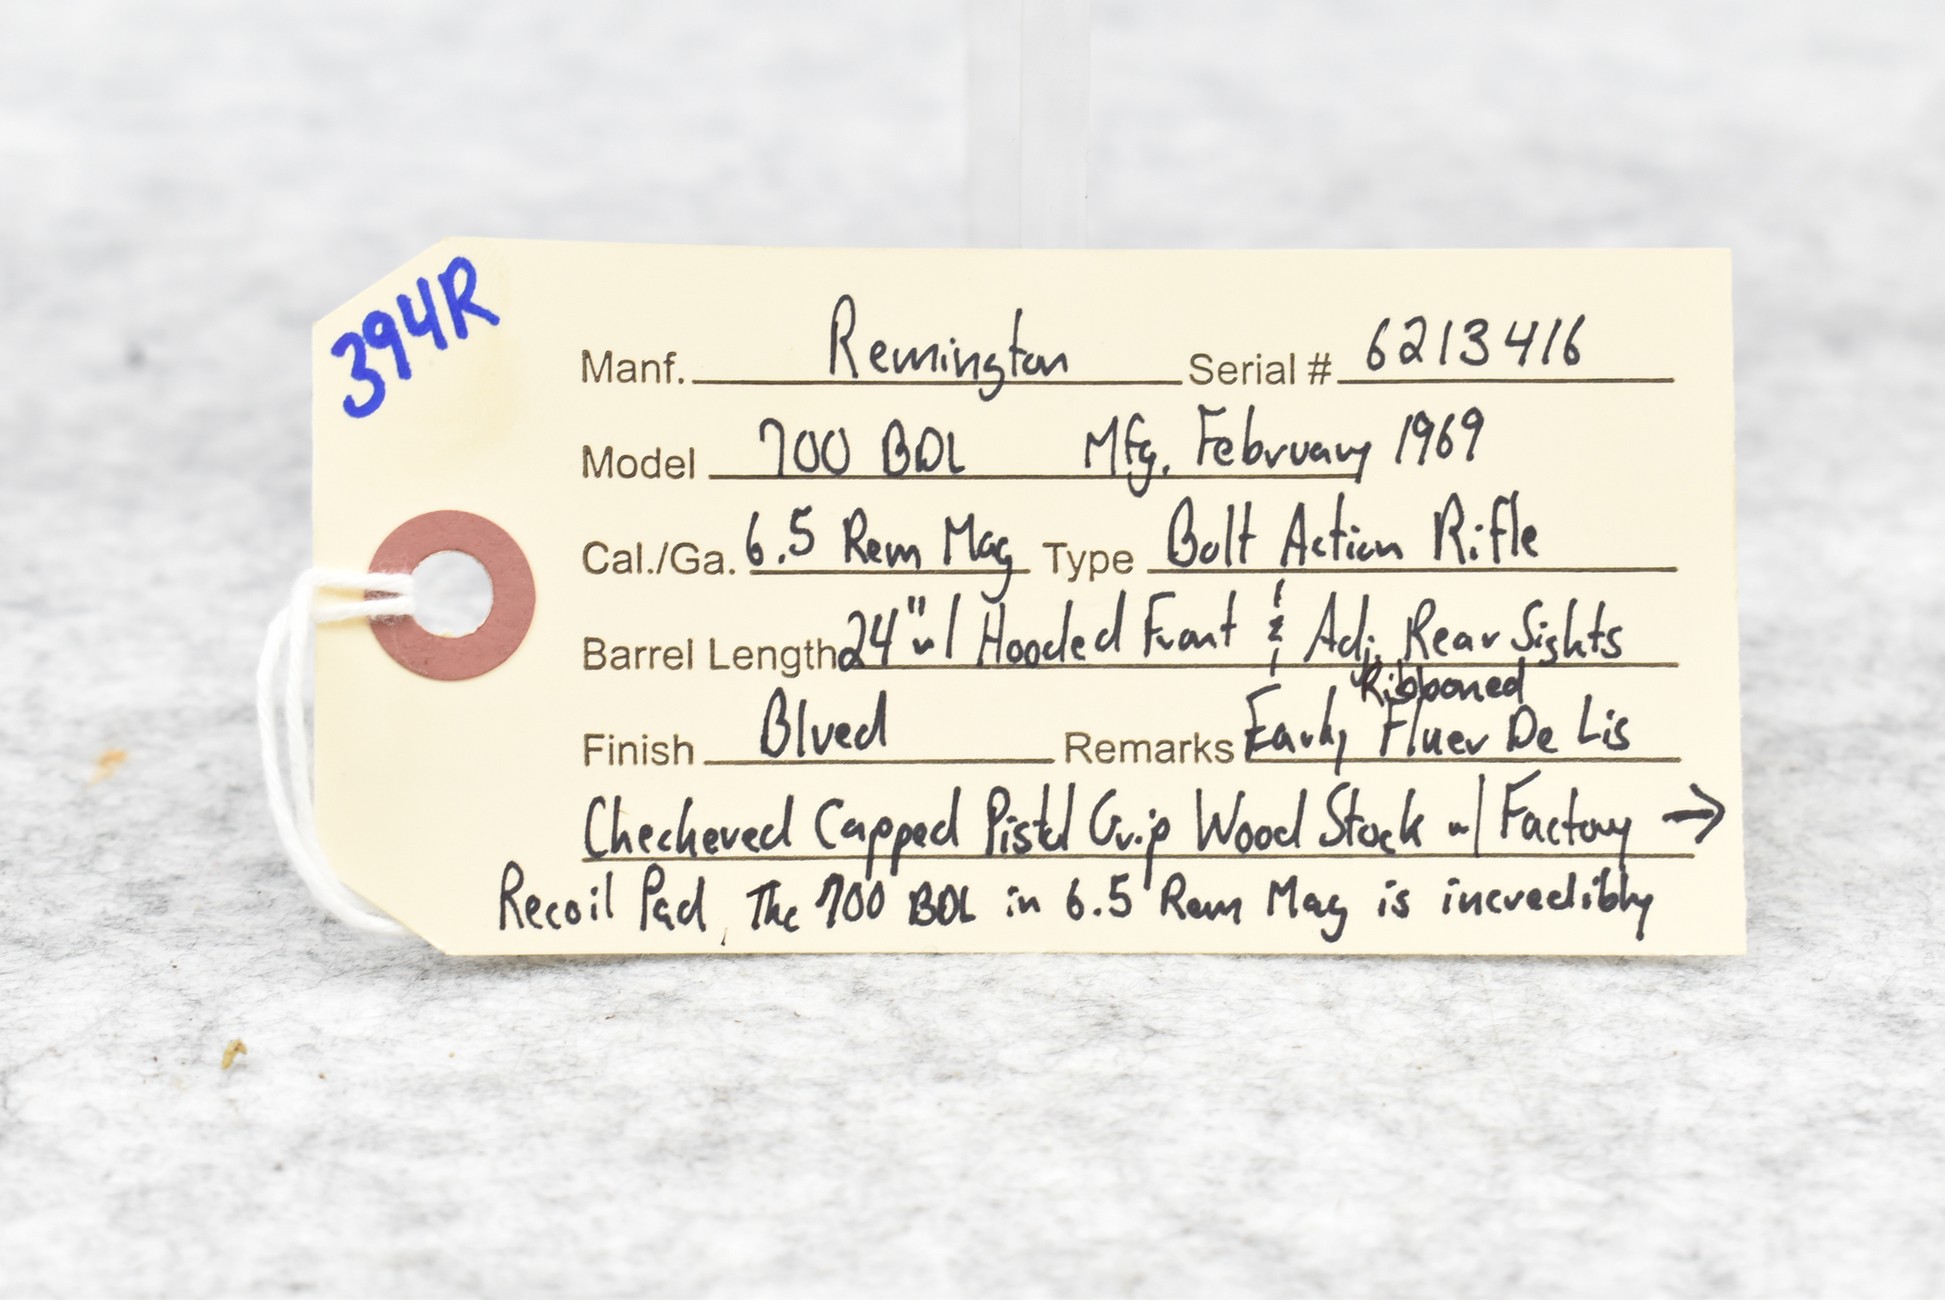 394R
Manf. Remington Serial # 6213416
Model 700 BDL Mfg. February 1969
Cal./Ga. 6.5 Rem Mag Type Bolt Action Rifle
Barrel Length 24" w/ Hooded Front & Adj. Rear Sights
Ribboned
Finish Blued Remarks Early Fluer De Lis
Checkered Capped Pistol Grip Wood Stock w/ Factory →
Recoil Pad, The 700 BDL in 6.5 Rem Mag is incredibly